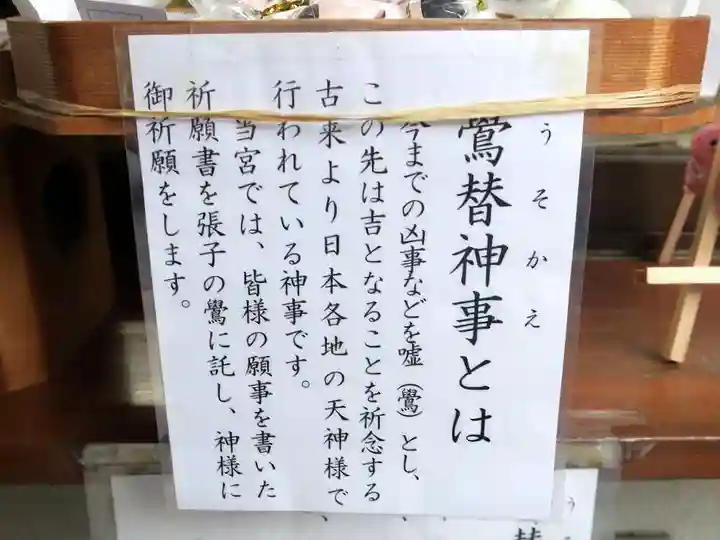 うそかえ
鷽替神事とは
今までの凶事などを嘘(鷽)とし、
この先は吉となることを祈念する
古来より日本各地の天神様で
行われている神事です。
当宮では、皆様の願事を書いた
祈願書を張子の鷽に託し、神様に
御祈願をします。